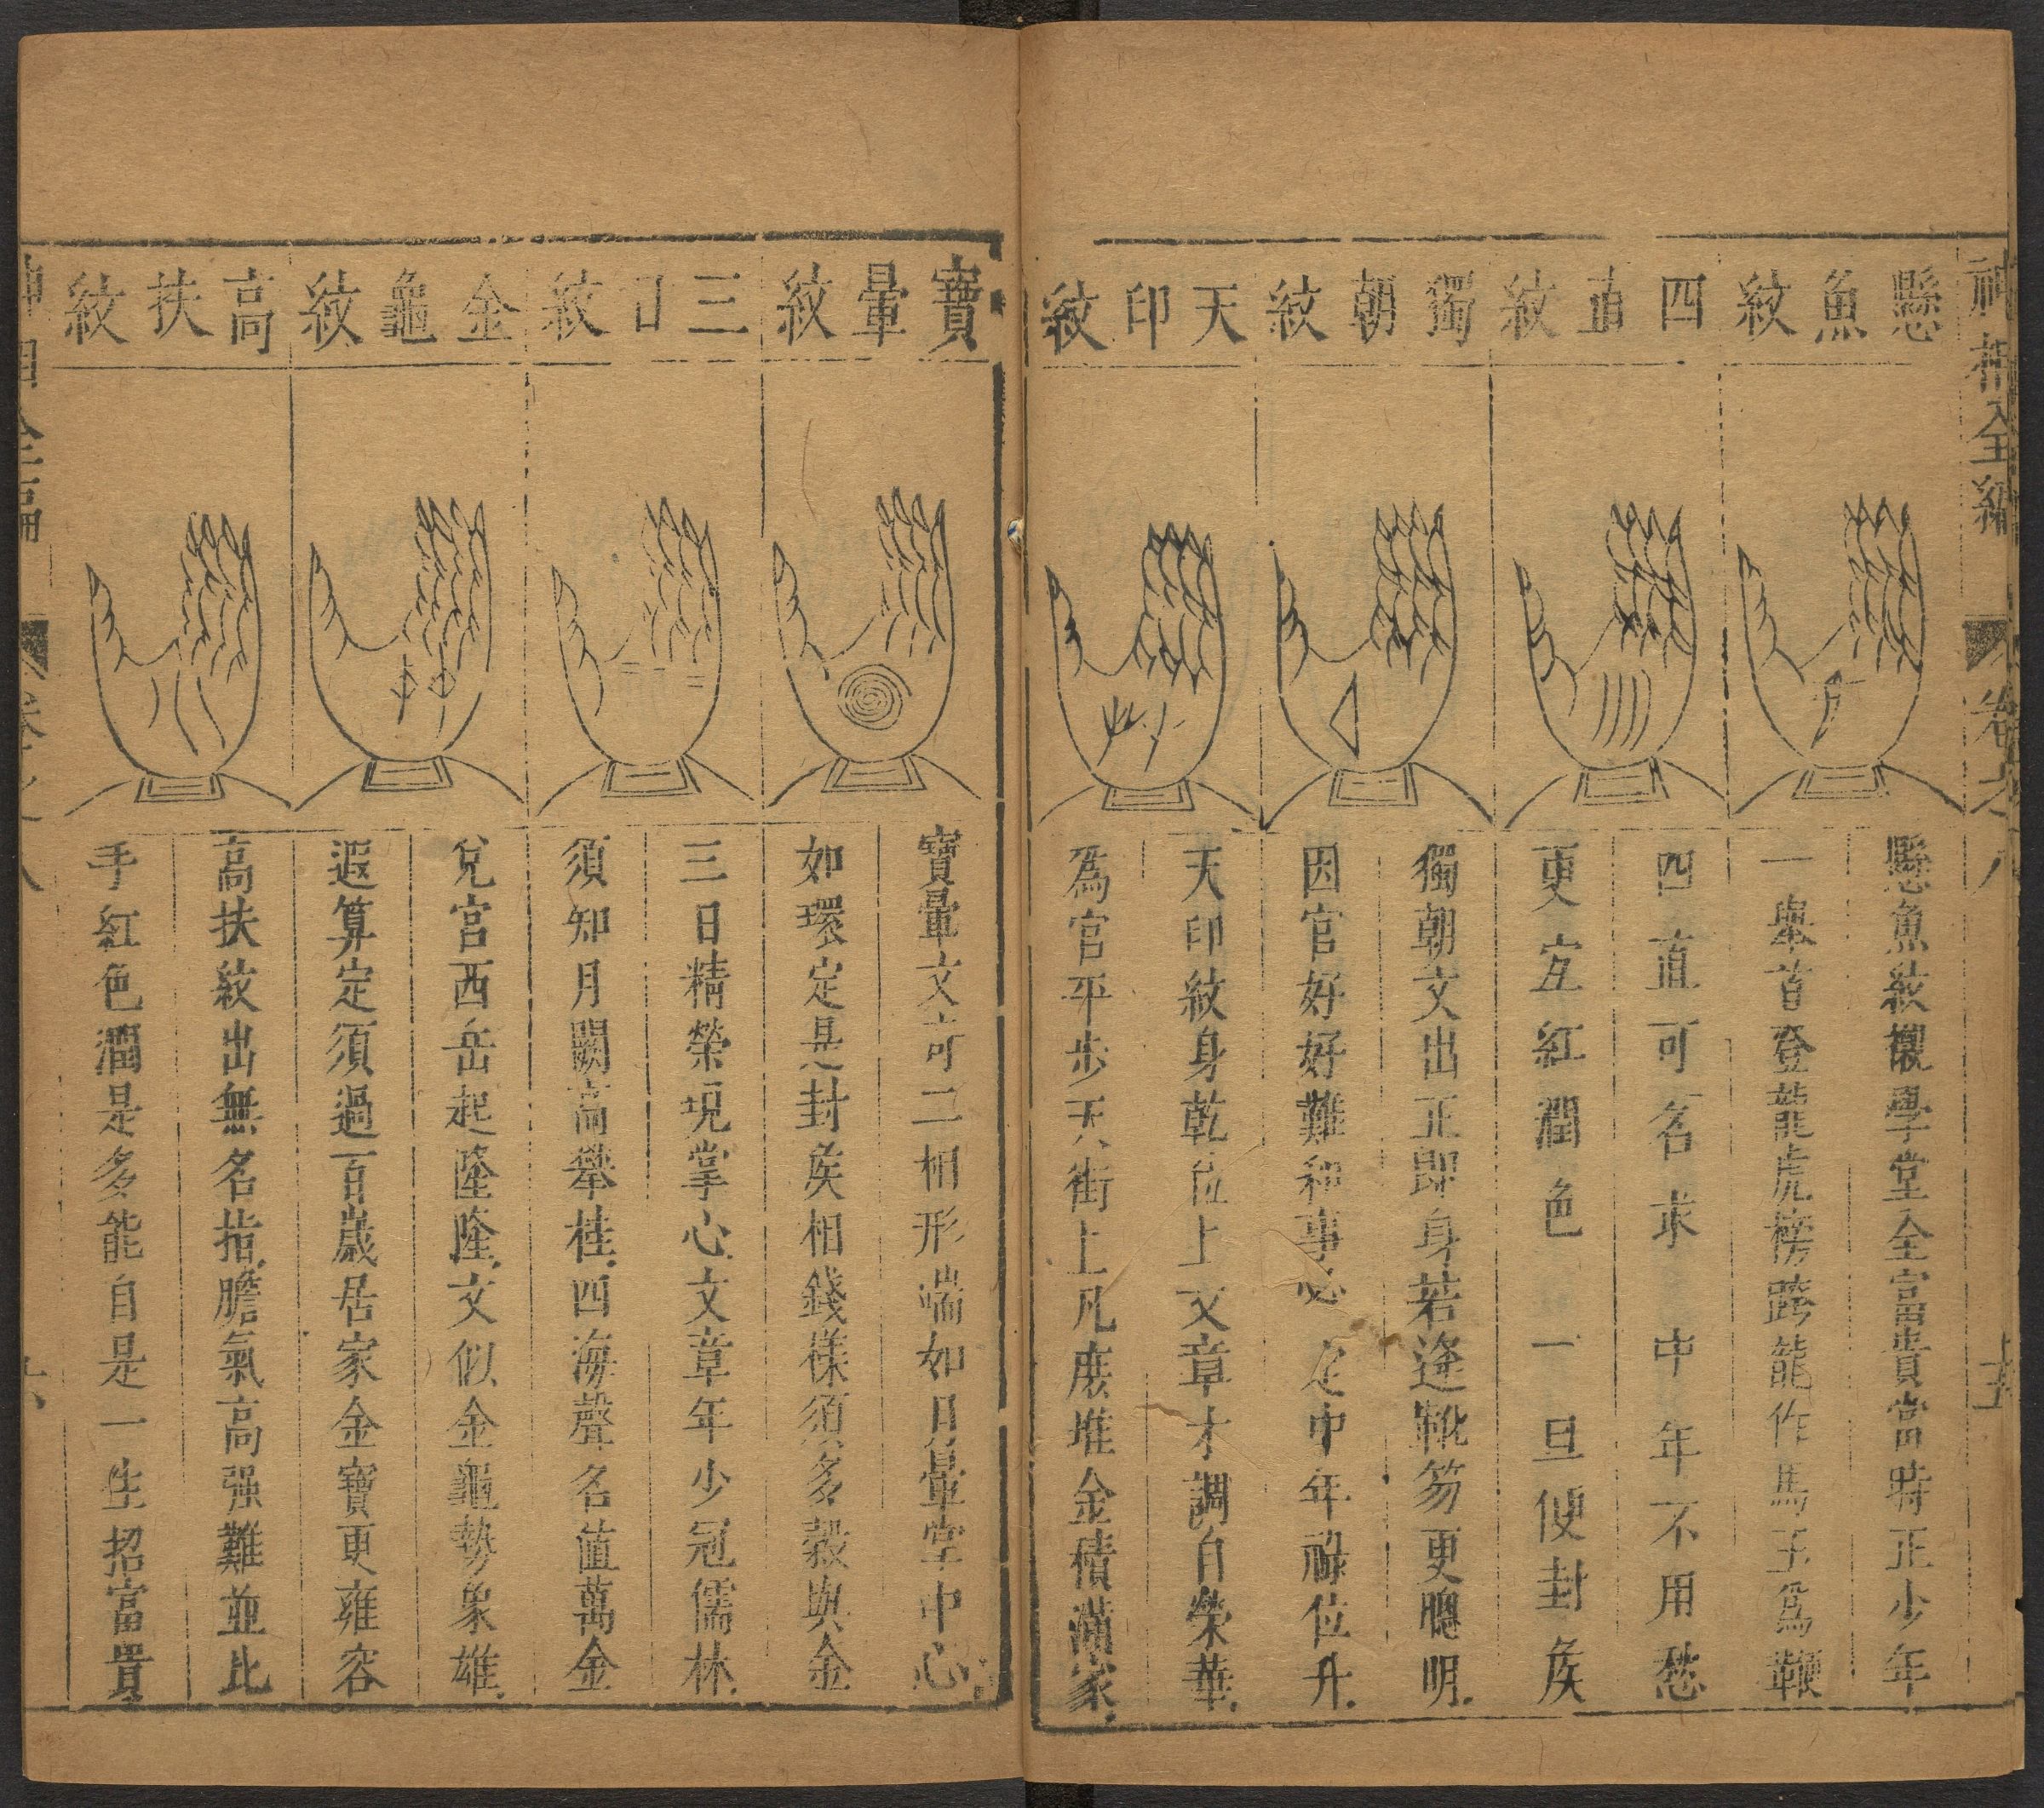 神相全編
卷之八
懸魚紋
四直紋
獨朝紋
天印紋
懸魚紋襯學堂全富貴當時正少年
一舉首登龍虎榜跨龍作馬玉爲鞭
四直可名求中年不用愁
更宜紅潤色一旦便封侯
獨朝文出正郎身若逢靴笏更聰明
因官好好難和事必定中年祿位升
天印紋身乾位上文章才調自榮華
爲官平步天街上凡庶堆金積滿家
寶暈紋
三日紋
金龜紋
高扶紋
寶暈文奇二相形端如日暈掌中心
如環定是封侯相錢樣須多穀與金
三日精榮現掌心文章年少冠儒林
須知月闕高舉桂四海聲名值萬金
兌宮西岳起隆隆文似金龜勢象雄
遐算定須過百歲居家金寶更雍容
高扶紋出無名指膽氣高强難並比
手紅色潤是多能自是一生招富貴
神相全編
卷之八